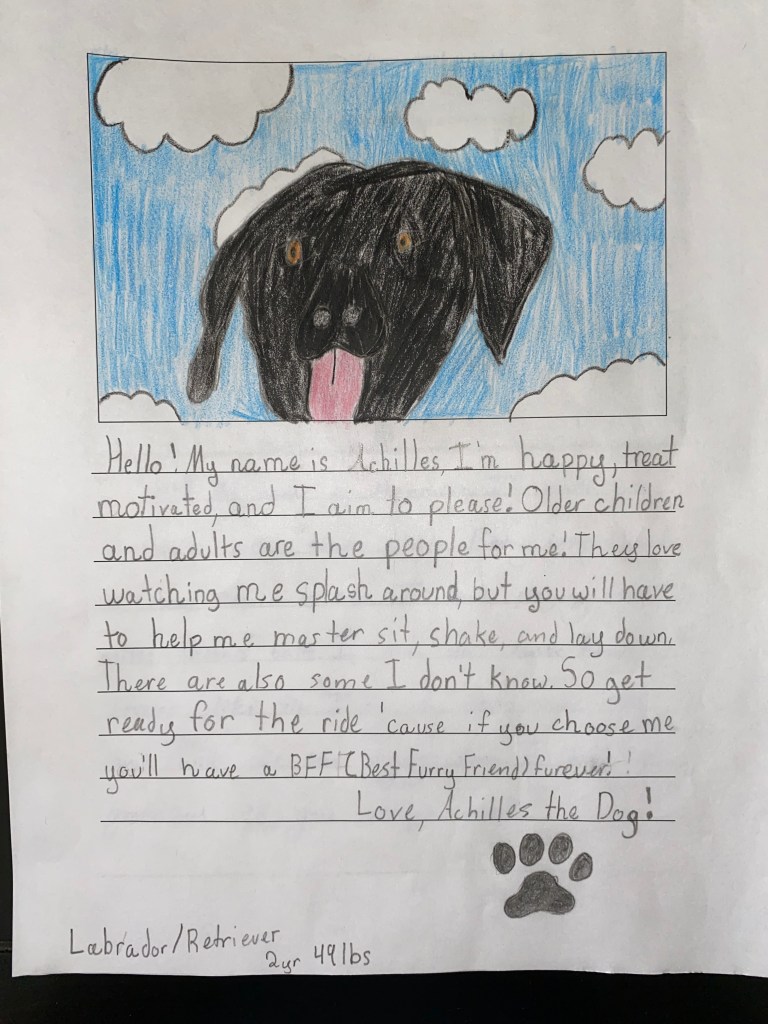 Hello! My name is Achilles, I'm happy, treat
motivated, and I aim to please! Older children
and adults are the people for me! They love
watching me splash around, but you will have
to help me master sit, shake, and lay down.
There are also some I don't know. So get
ready for the ride 'cause if you choose me
you'll have a BFF (Best Furry Friend) furever!
Love, Achilles the Dog!
Labrador/Retriever
2yr 49lbs